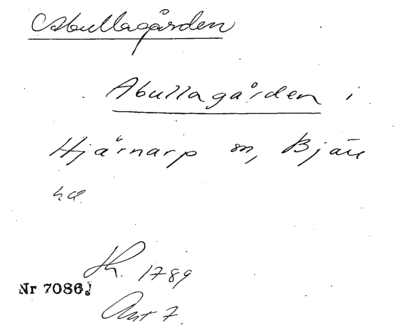 Abullagården
Abullagården i
Hjärnarp sn, Bjäre
hd.
Th. 1789
Nr 7086.
Ant 7.